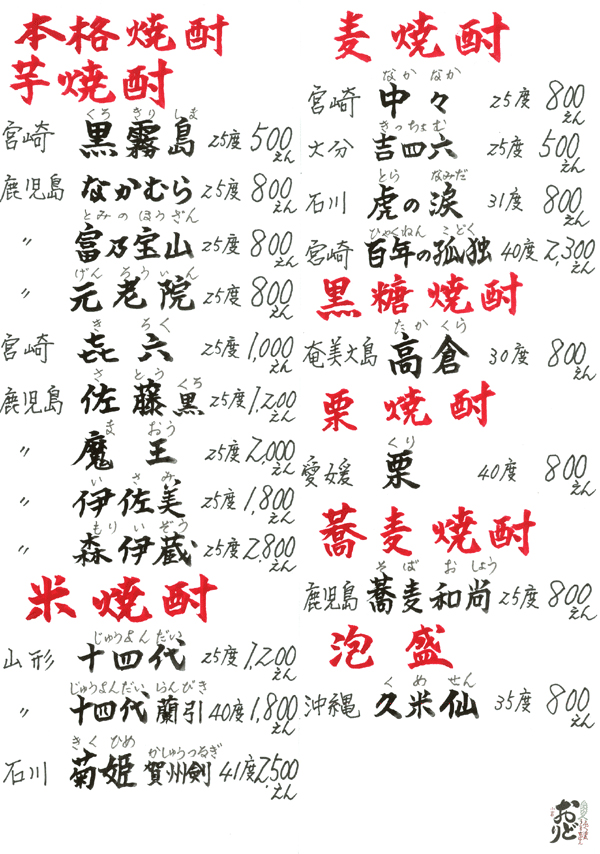 本格焼酎
芋焼酎
くろ きり しま
宮崎 黒霧島 25度 500えん
鹿児島 なかむら 25度 800えん
とみのほうざん
〃 富乃宝山 25度 800えん
げんろういん
〃 元老院 25度 800えん
き ろく
宮崎 㐂六 25度 1,000えん
さ とう くろ
鹿児島 佐藤黒 25度 1,200えん
ま おう
〃 魔王 25度 2,000えん
い さ み
〃 伊佐美 25度 1,800えん
もり い ぞう
〃 森伊蔵 25度 2,800えん
米焼酎
じゅうよんだい
山形 十四代 25度 1,200えん
じゅうよんだい らんびき
〃 十四代 蘭引 40度 1,800えん
きく ひめ かしゅうつるぎ
石川 菊姫 賀州剣 41度 2,500えん
麦焼酎
なか なか
宮崎 中々 25度 800えん
きっちょむ
大分 吉四六 25度 500えん
とら なみだ
石川 虎の涙 31度 800えん
ひゃくねん こどく
宮崎 百年の孤独 40度 2,300えん
黒糖焼酎
たか くら
奄美大島 高倉 30度 800えん
栗焼酎
くり
愛媛 栗 40度 800えん
蕎麦焼酎
そ ば お しょう
鹿児島 蕎麦和尚 25度 800えん
泡盛
く め せん
沖縄 久米仙 35度 800えん
おどり